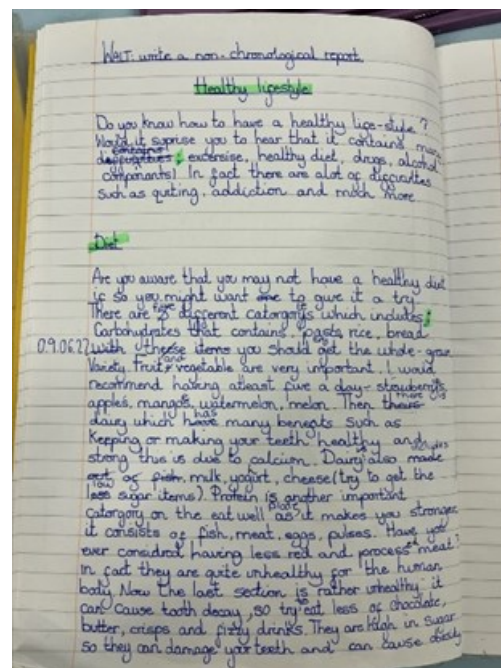 WALT: write a non-chronological report
Healthy lifestyle
Do you know how to have a healthy life-style?
Would it suprise you to hear that it contains many
contains
; excersise, healthy diet, drugs, alcohol
components! In fact there are alot of difficulties
such as quiting, addiction and much more
Diet
Are you aware that you may not have a healthy diet
if so you might want to give it a try
There are five different catorgorys which includes;
Carbohydrates that contains, pasta, rice, bread
09.06.22 with these items you should get the whole-grain
Variety. Fruit and vegetable are very important. I would
recommend having atleast five a day- strawberrys,
apples, mangos, watermelon, melon. Then there is
dairy which has many benefits such as
keeping or making your teeth healthy and
strong this is due to calcium. Dairy also includes
milk, yogurt, cheese (try to get the
low sugar items). Protein is another important
catorgory on the eat well plate as it makes you stronger
it consists of fish, meat, eggs, pulses. Have you
ever considred having less red and processed meat?
In fact they are quite unhealthy for the human
body. Now the last section is rather unhealthy it
can cause tooth decay, so try to eat less of chocolate,
butter, crisps and fizzy drinks. They are high in sugar
so they can damage your teeth and can cause obesity